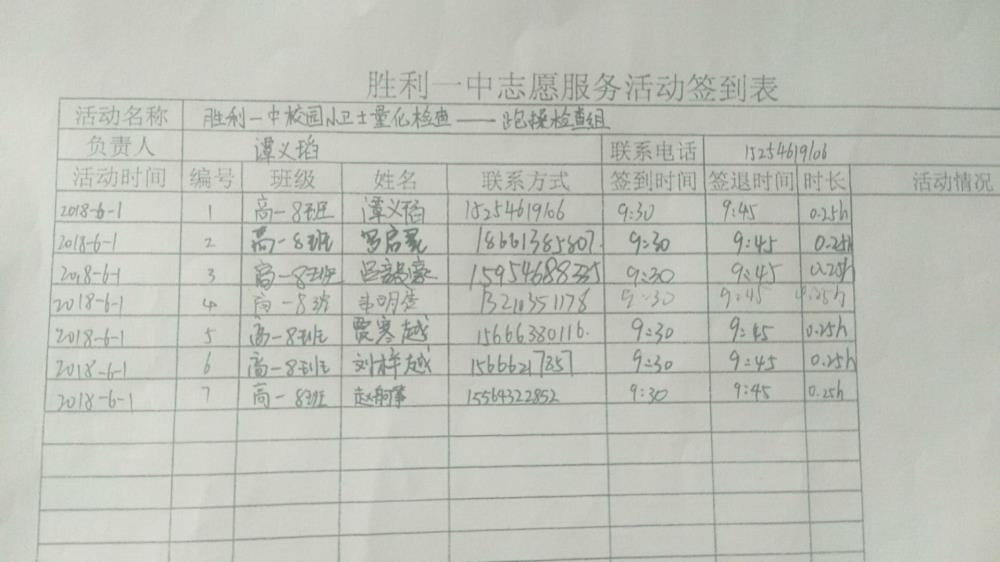 胜利一中志愿服务活动签到表
活动名称 胜利一中校园小卫士量化检查——跑操检查组
负责人 谭义韬 联系电话 15254619106
活动时间 编号 班级 姓名 联系方式 签到时间 签退时间 时长 活动情况
2018-6-1 1 高一8班 谭义韬 15254619106 9:30 9:45 0.25h
2018-6-1 2 高一8班 18661385807 9:30 9:45 0.25h
2018-6-1 3 高一8班 9:30 9:45 0.25h
2018-6-1 4 高一8班 13210351178 9:30 9:45 0.25h
2018-6-1 5 高一8班 贾寒越 15666380116. 9:30 9:45 0.25h
2018-6-1 6 高一8班 刘祥越 15666217357 9:30 9:45 0.25h
2018-6-1 7 高一8班 15564322852 9:30 9:45 0.25h